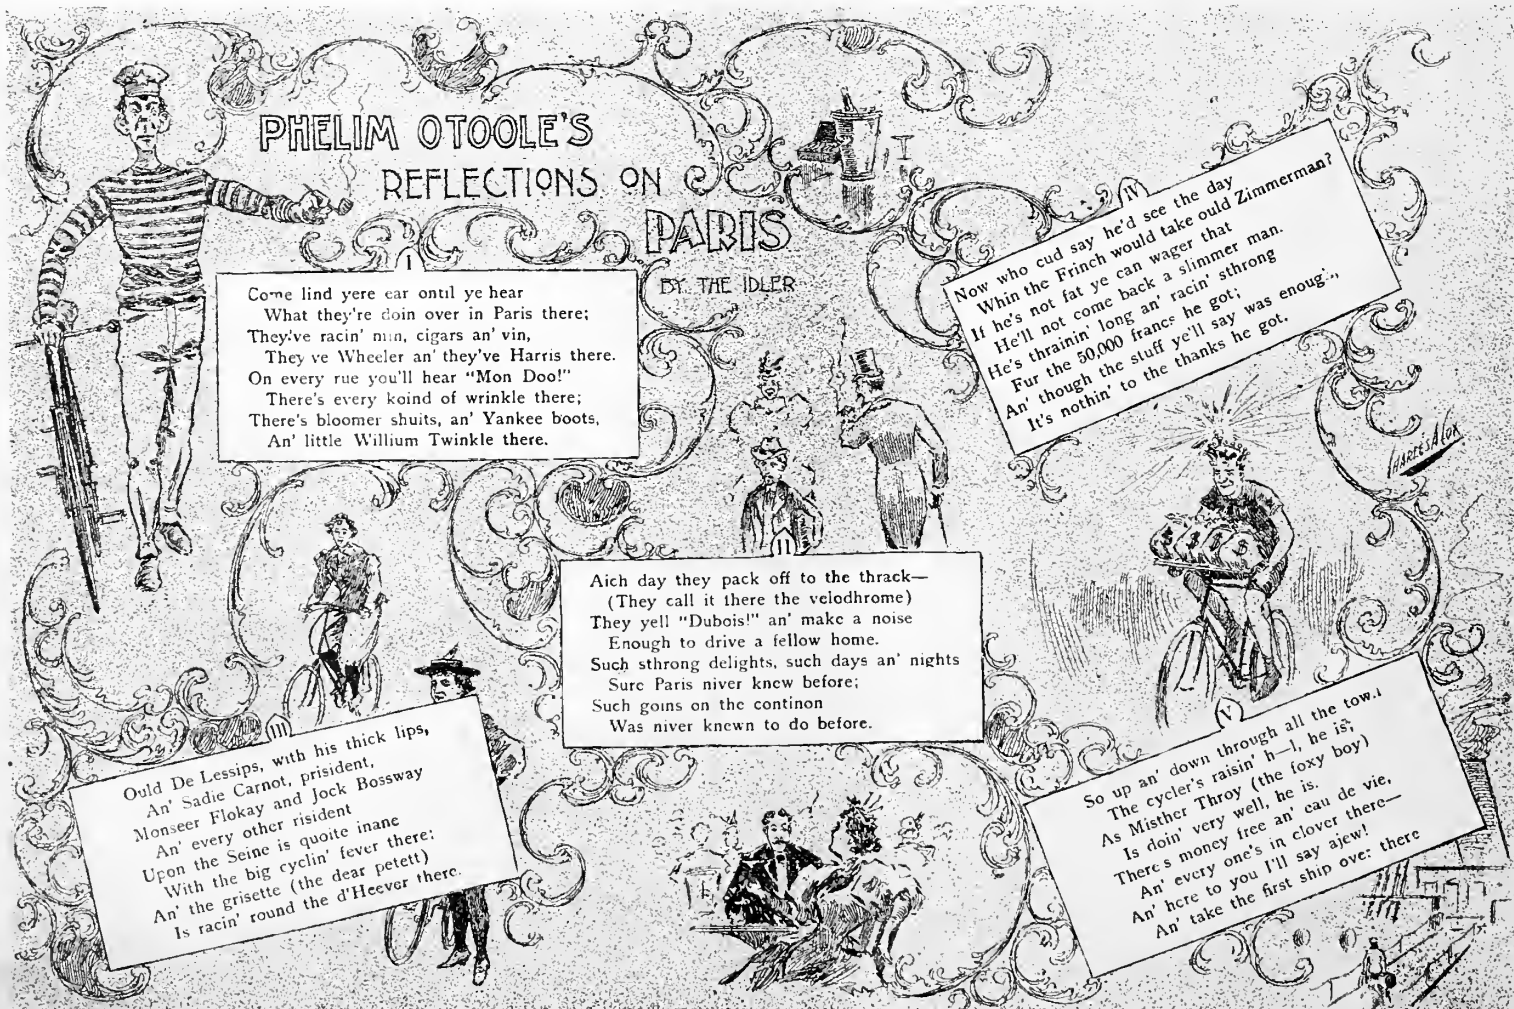 PHELIM OTOOLE'S
REFLECTIONS ON
PARIS
BY THE IDLER
I
Come lind yere ear ontil ye hear
What they're doin over in Paris there;
They've racin' min, cigars an' vin,
They ve Wheeler an' they've Harris there.
On every rue you'll hear "Mon Doo!"
There's every koind of wrinkle there;
There's bloomer shuits, an' Yankee boots,
An' little Willium Twinkle there.
II
Aich day they pack off to the thrack—
(They call it there the velodhrome)
They yell "Dubois!" an' make a noise
Enough to drive a fellow home.
Such sthrong delights, such days an' nights
Sure Paris niver knew before;
Such goins on the continon
Was niver knewn to do before.
III
Ould De Lessips, with his thick lips,
An' Sadie Carnot, prisident,
Monseer Flokay and Jock Bossway
An' every other risident
Upon the Seine is quoite inane
With the big cyclin' fever there;
An' the grisette (the dear petett)
Is racin' round the d'Heever there.
IV
Now who cud say he'd see the day
Whin the Frinch would take ould Zimmerman?
If he's not fat ye can wager that
He'll not come back a slimmer man.
He's thrainin' long an' racin' sthrong
Fur the 50,000 francs he got;
An' though the stuff ye'll say was enough,
It's nothin' to the thanks he got.
CHARLES A COX
V
So up an' down through all the town
The cycler's raisin' h—l, he is;
As Misther Throy (the foxy boy)
Is doin' very well, he is.
There's money free an' eau de vie,
An' every one's in clover there—
An' here to you I'll say ajew!
An' take the first ship over there
$ $ $ $